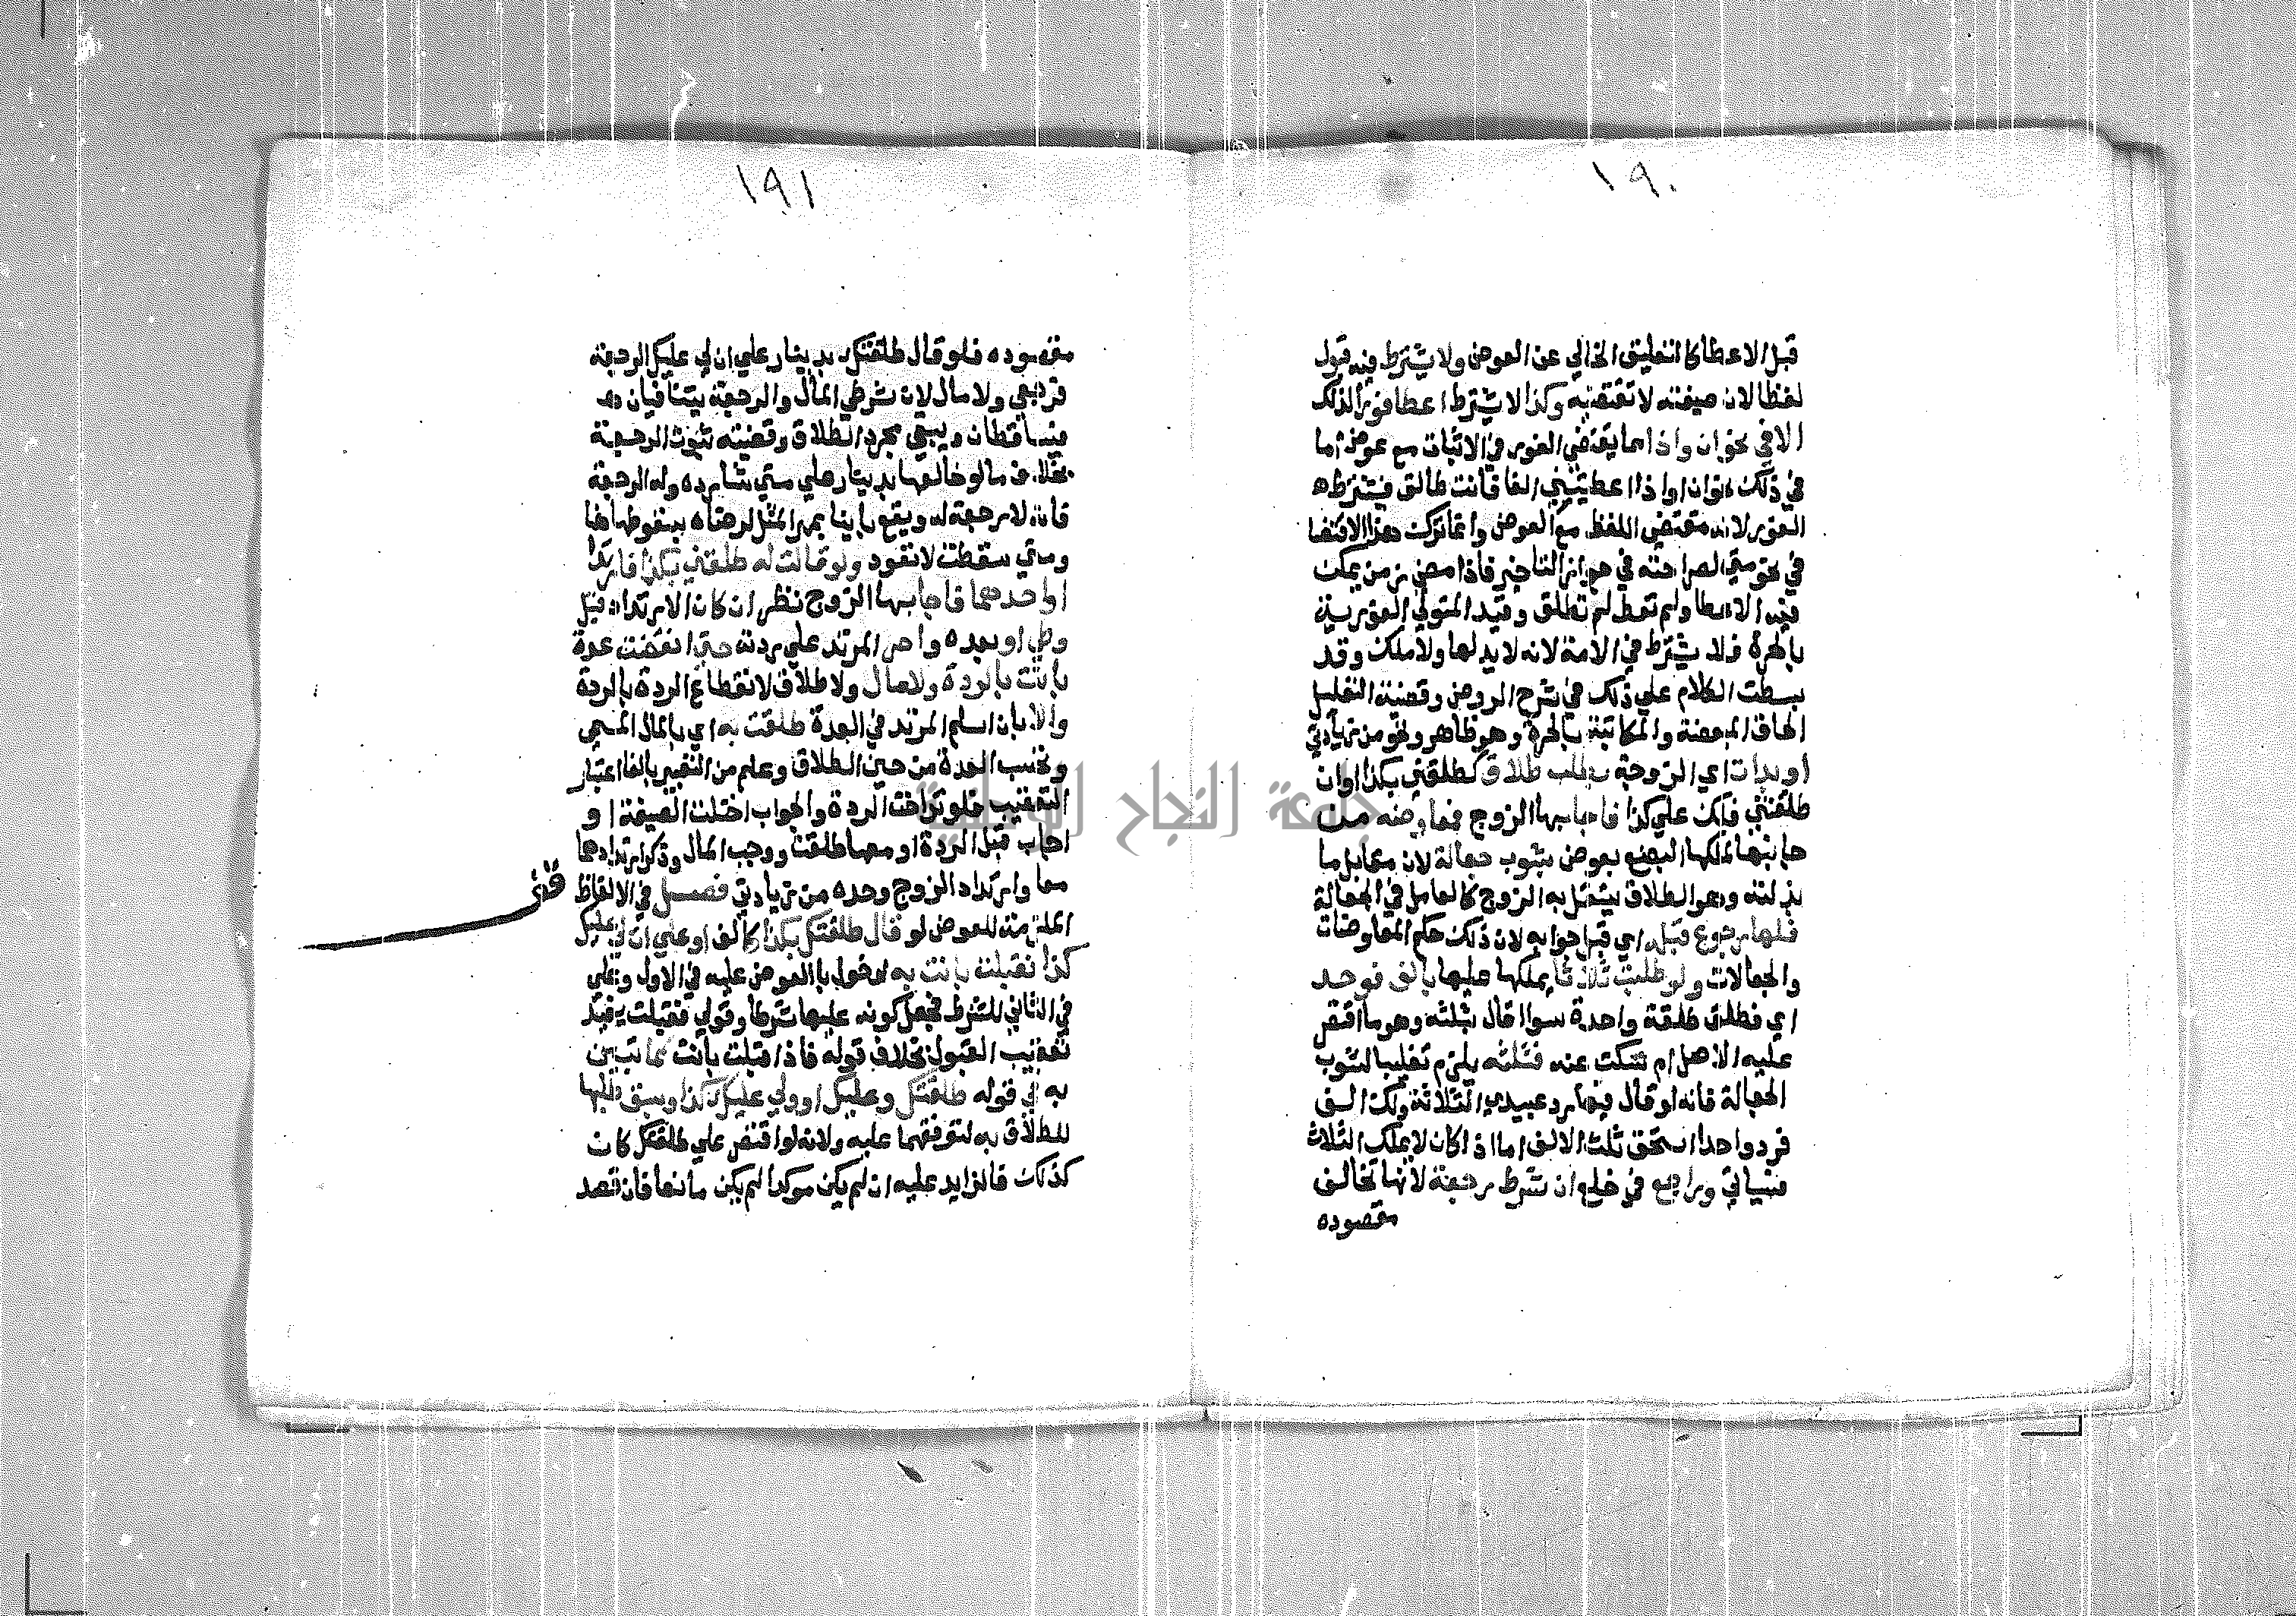 ١٩٠
قبل الاعطا كا التعليق الخالي عن العوض ولا يشترط فيه قبول
لفظا لان صيغته لا تقتضيه وكذا لا يشترط اعطا فورا لذلك
الا في نحو ان واذا مما يقتضي الفور في الاثبات مع عوض اما
في ذلك نحو ان او اذا اعطيتيني الفا فانت طالق فيشترط
الفور لانه مقتضي اللفظ مع العوض وانما تركت هذا الاقتضا
في نحو متي لصراحته في جواز التاخير فاذا مضي زمن يمكن
فيه الاعطا ولم تعط لم تطلق وقيد المتولي الفورية
بالحرة فلا يشترط في الامة لانه لا يد لها ولا ملك وقد
بسطت الكلام علي ذلك في شرح الروض وقضية التعليل
الحاق المبعضة والمكاتبة بالحرة وهو ظاهر ونحو من زيادتي
او بدات اي الزوجة بطلب طلاق كطلقني بكذا او ان
طلقتني فلك علي كذا فاجابها الزوج فمعاوضه من
جانبها لملكها البضع بعوض بشوب جعالة لان مقابل ما
بذلته وهو الطلاق يستقل به الزوج كالعامل في الجعالة
فلها رجوع قبله اي قبل جوابه لان ذلك حكم المعاوضات
والجعالات ولو طلبت ثلاثا يملكها عليها بالف فوحد
اي فطلق طلقة واحدة سوا قال بثلثه وهو ما اقتصر
عليه الاصل ام سكت عنه فثلثه يلزم تغليبا لشوب
الجعالة فانه لو قال فيها رد عبيدي الثلاثة ولك الف
فرد واحدا استحق ثلث الالف اما اذا كان لا يملك الثلاث
فسياتي وراجع في خلع ان شرط رجعة لانها تخالف
مقصوده
١٩١
مقصوده فلو قال طلقتك بدينار علي ان لي عليك الرجعة
فرجعي ولا مال لان شرطي المال والرجعة يتنافيان
فيتساقطان ويبقي مجرد الطلاق وقضيته ثبوت الرجعة
بخلاف ما لو خالعها بدينار علي متي شا رده وله الرجعة
فانه لا رجعة له ويقع باينا بمهر المثل لرضاه بسقوطها هنا
ومتي سقطت لا تعود ولو قالت له طلقني بكذا فارتدا
او احدهما فاجابها الزوج نظر ان كان الارتداد قبل
وطي او بعده واصر المرتد علي ردته حتي انقضت عدة
بانت بالردة ولا مال ولا طلاق لانقطاع الردة بالردة
والا بان اسلم المرتد في العدة طلقت به اي بالمال المسمي
وتحسب العدة من حين الطلاق وعلم من التعبير بالفا اعتبار
التعقيب فلو تراخت الردة والجواب اختلت الصيغة او
اجاب قبل الردة او معها طلقت ووجب المال وذكر ارتدادهما
معا وارتداد الزوج وحده من زيادتي فصل في الالفاظ
الملزمة للعوض لو قال طلقتك بكذا كالف او علي ان لي عليك
كذا فقبلته بانت به لدخول با العوض عليه في الاول وعلي
في الثاني للشرط فجعل كونه عليها شرطا وقولي فقبلت يفيد
تعقيب القبول بخلاف قوله فاذا قبلت بانت كما تبين
به في قوله طلقتك وعليك او ولي عليك كذا وسبق طلبها
للطلاق به لتوافقهما عليه ولانه لو اقتصر علي طلقتك كان
كذلك فالزايد عليه ان لم يكن موكدا لم يكن مانعا فان قصد